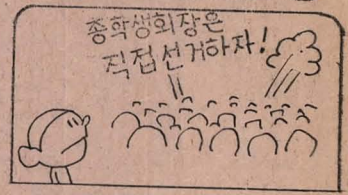 총학생회장은
직접선거하자!